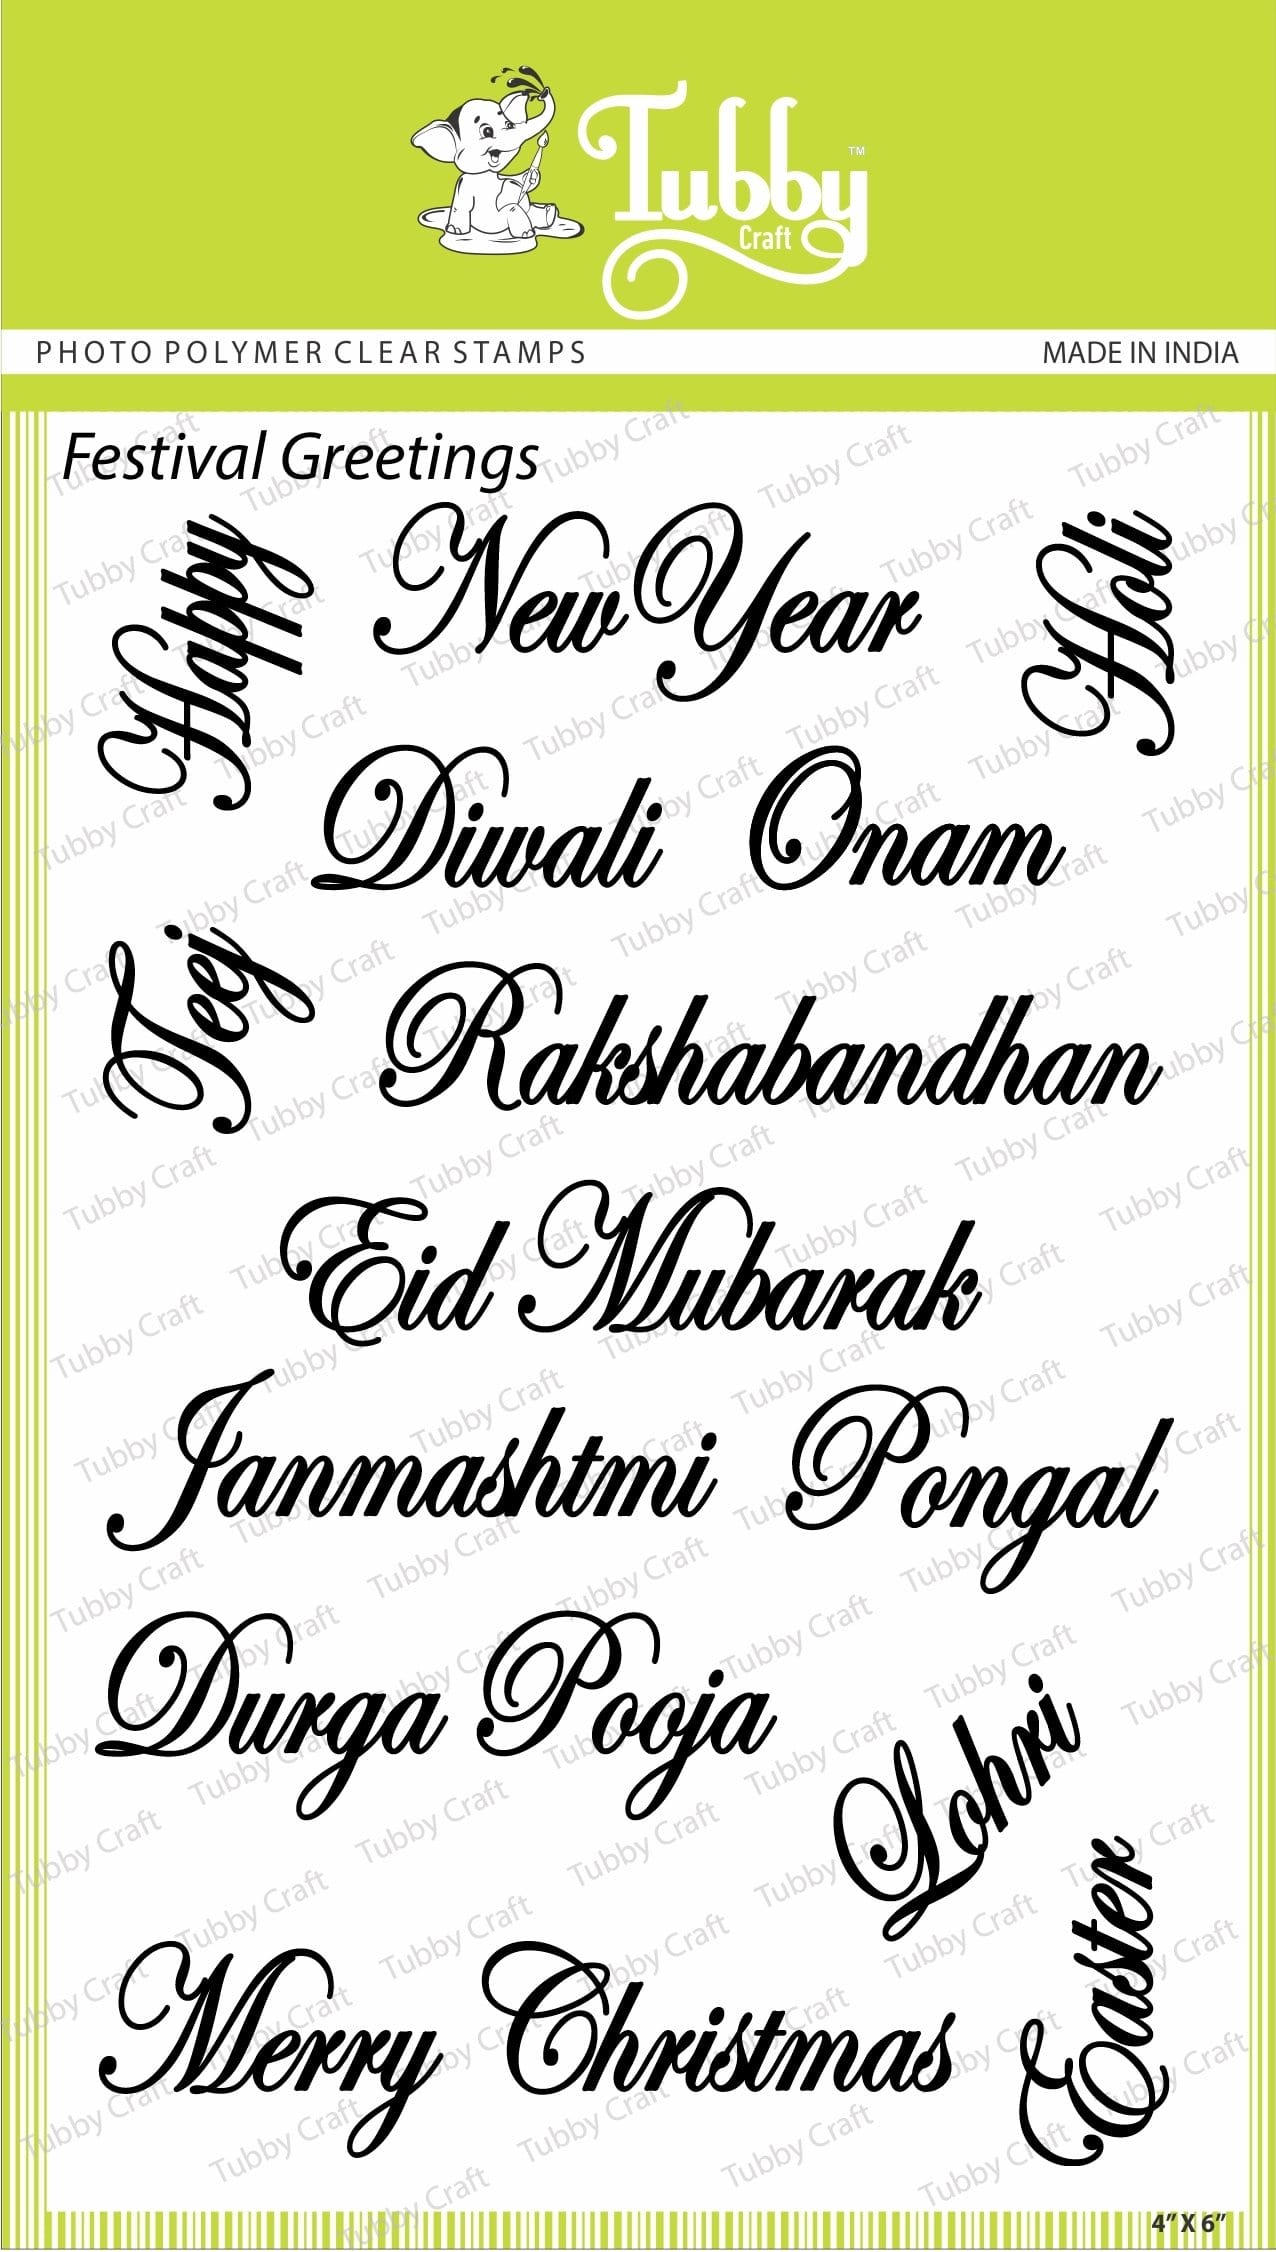 Tubby™
Craft
PHOTO POLYMER CLEAR STAMPS
MADE IN INDIA
Festival Greetings
Happy
New Year
Holi
Diwali
Onam
Teej
Rakshabandhan
Eid Mubarak
Janmashtmi
Pongal
Durga Pooja
Lohri
Easter
Merry Christmas
4” X 6”
Tubby Craft